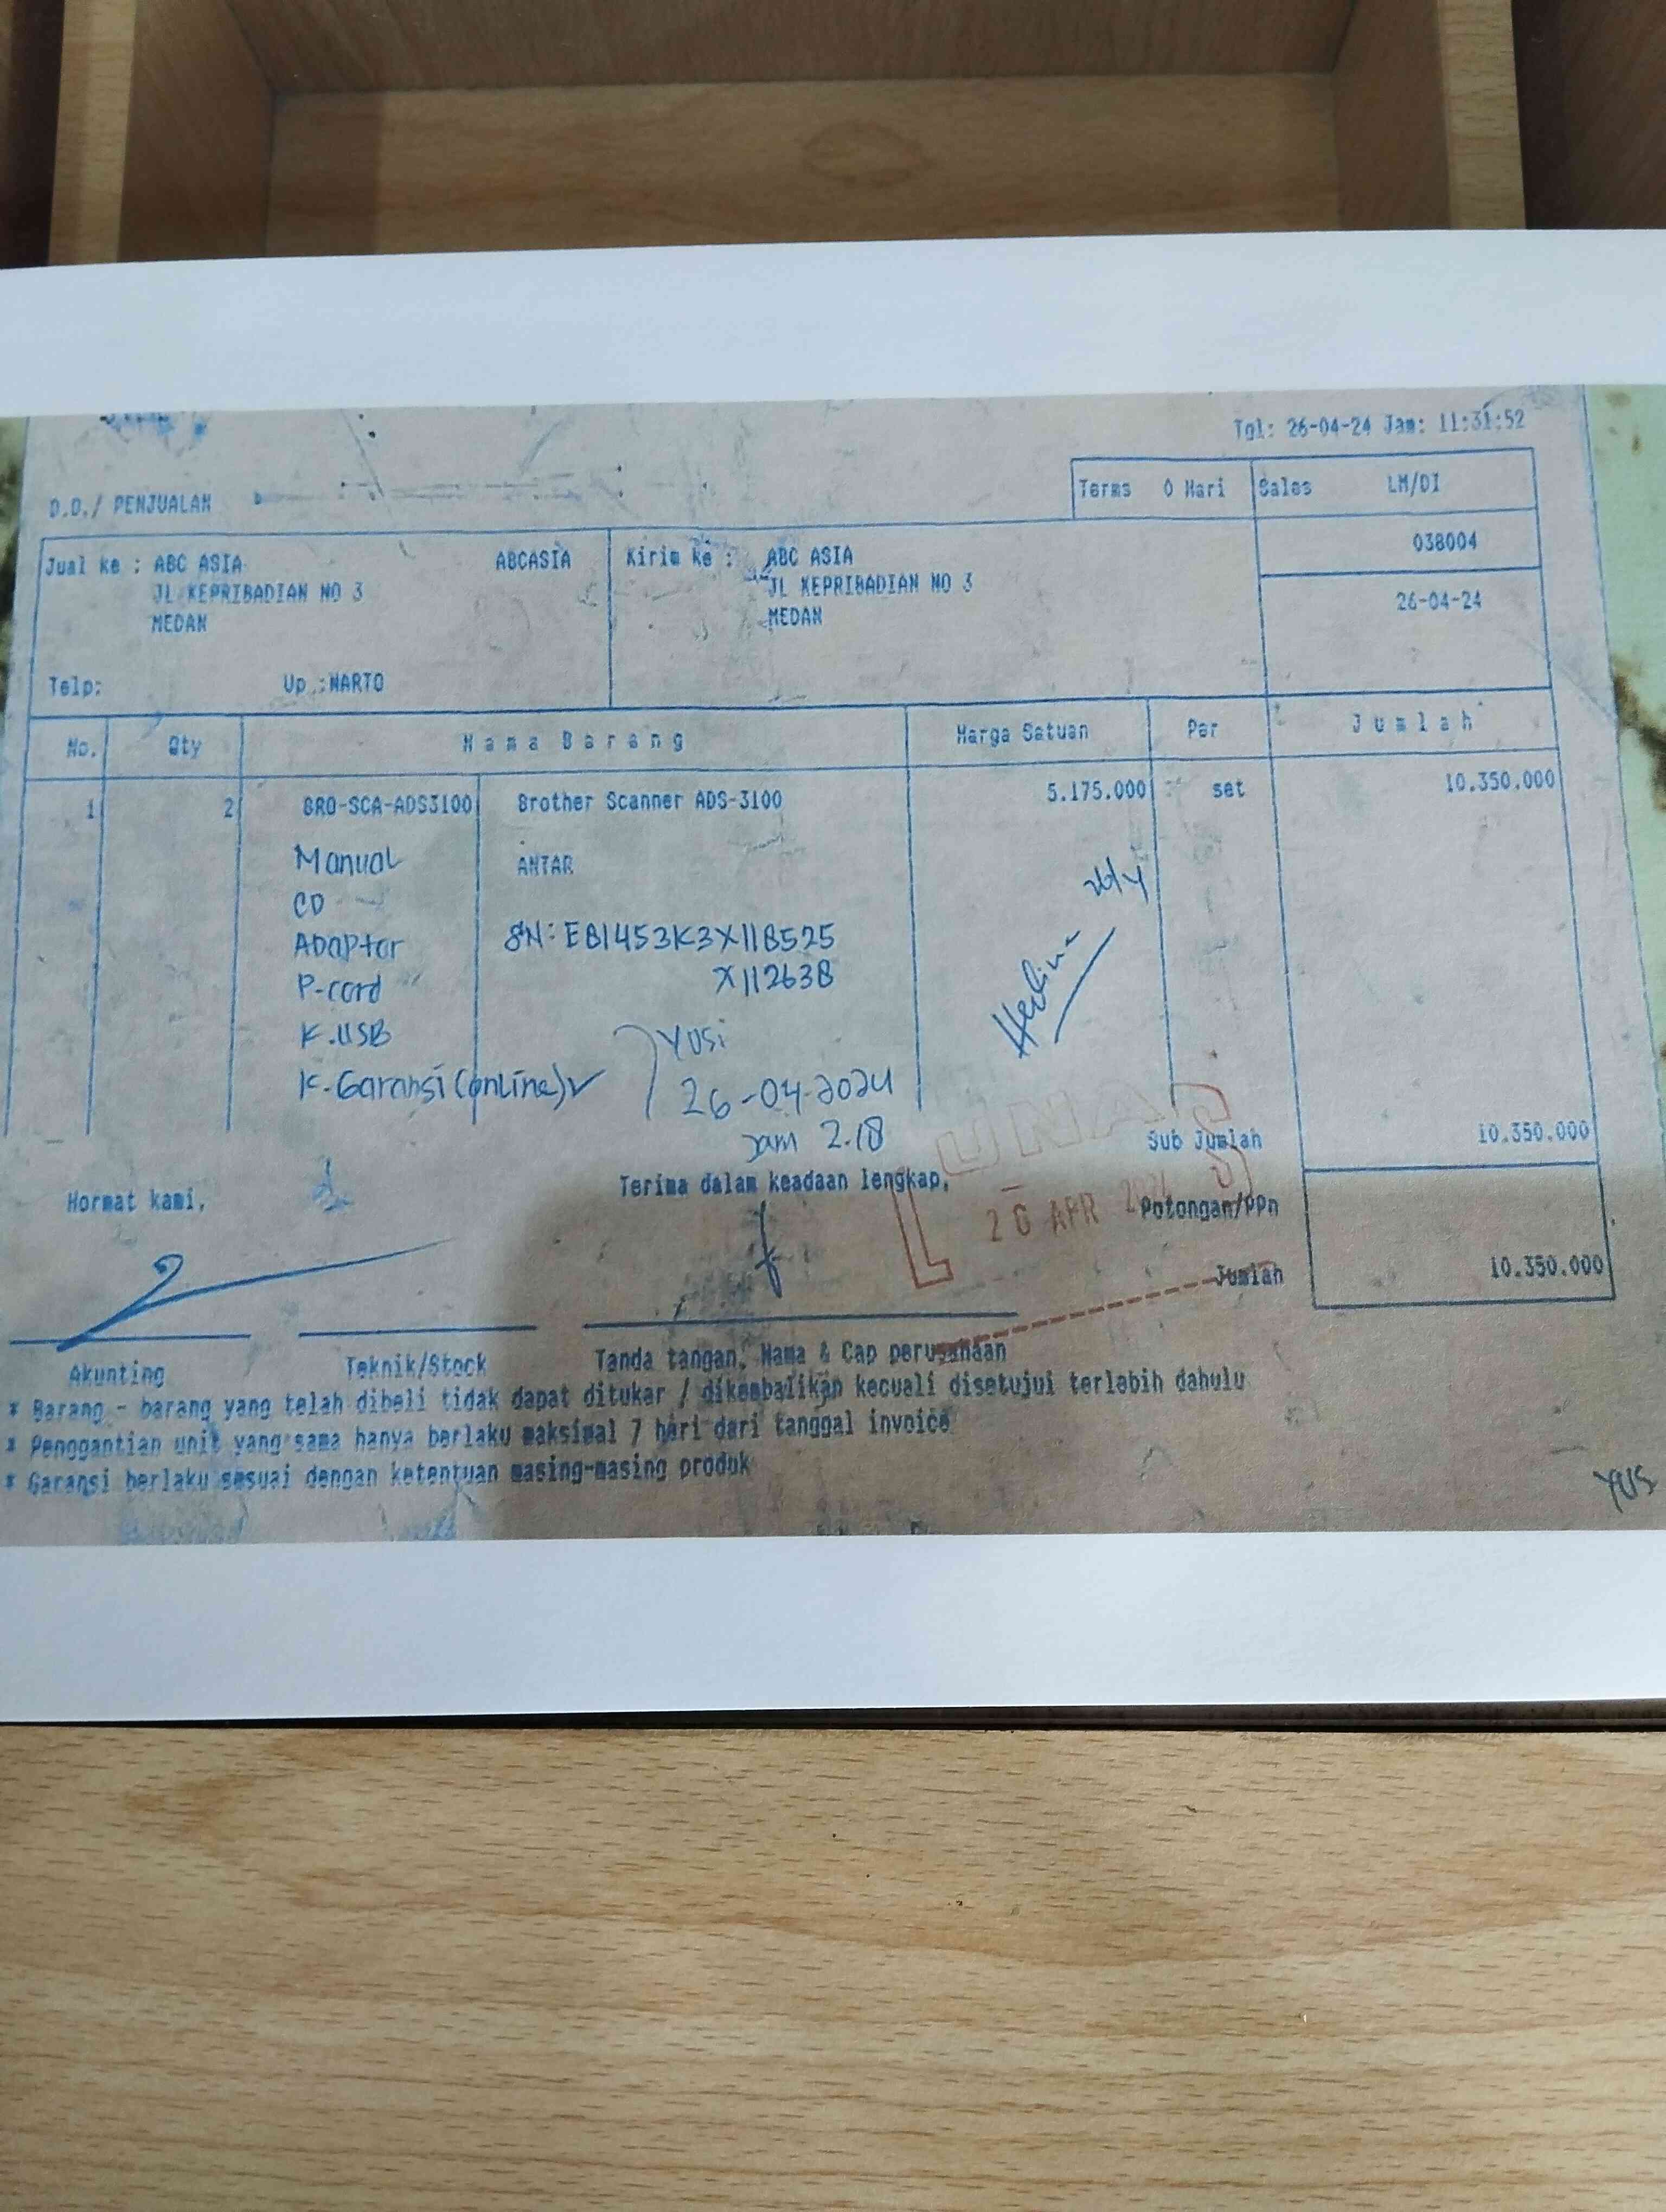 Tgl: 26-04-24 Jam: 11:31:52
D.O./ PENJUALAN
Terms 0 Hari Sales LM/DI
038004
26-04-24
Jual ke : ABC ASIA ABCASIA
JL KEPRIBADIAN NO 3
MEDAN
Telp: Up :
Kirim ke : ABC ASIA
JL KEPRIBADIAN NO 3
MEDAN
No. Qty Nama Barang Harga Satuan Per Jumlah
1 2 BRO-SCA-ADS3100 Brother Scanner ADS-3100 5.175.000 set 10.350.000
Manual
CD
Adaptor
P-cord
K.USB
K-Garansi (online)
ANTAR
SN: E81453K3X118525
X112638
YUSi
26-04-2024
Jam 2.18
26/4
LUNAS
26 APR 2024
Sub Jumlah 10.350.000
Potongan/PPn
Jumlah 10.350.000
Hormat kami,
Terima dalam keadaan lengkap,
Akunting
Teknik/Stock
Tanda tangan, Nama & Cap perusahaan
* Barang - barang yang telah dibeli tidak dapat ditukar / dikembalikan kecuali disetujui terlebih dahulu
* Penggantian unit yang sama hanya berlaku maksimal 7 hari dari tanggal invoice
* Garansi berlaku sesuai dengan ketentuan masing-masing produk
YUS